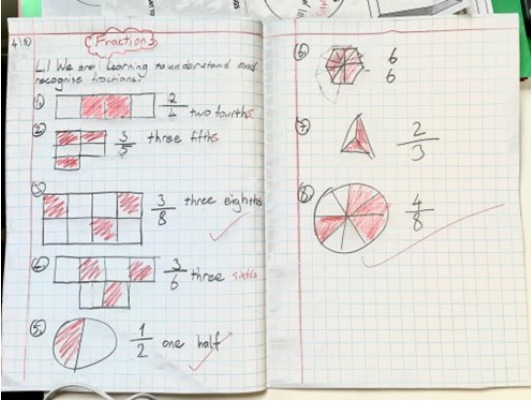 Fractions
LI We are learning to understand and
recognise fractions.
1 2/4 two fourths
2 3/5 three fifths
3 3/8 three eighths
4 3/6 three sixths
5 1/2 one half
6 6
6
7 2/3
8 4/8